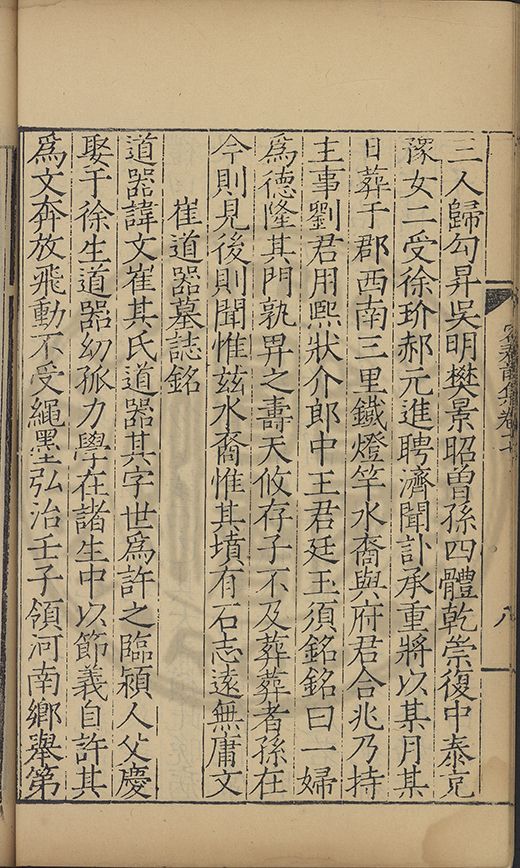 三人歸勾昇吳明樊景昭曾孫四體乾崇復中泰克
豫女二受徐玠郝元進聘濟聞訃承重將以某月某
日葬于郡西南三里鐵燈竿水裔與府君合兆乃持
主事劉君用熙狀介郎中王君廷玉須銘銘曰一婦
為德隆其門孰畀之壽天攸存子不及葬葬者孫在
今則見後則聞惟茲水裔惟其墳有石志遠無庸文
崔道器墓誌銘
道器諱文崔其氏道器其字世為許之臨潁人父慶
娶于徐生道器幼孤力學在諸生中以節義自許其
為文奔放飛動不受繩墨弘治壬子領河南鄉舉第
八